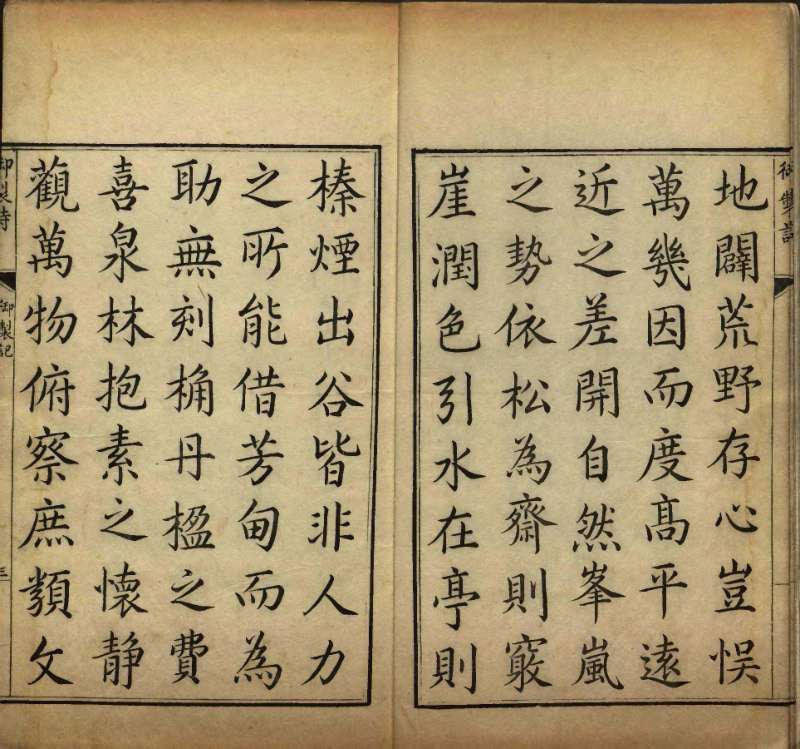 地闢荒野存心豈悞
萬幾因而度髙平遠
近之差開自然峯嵐
之勢依松為齋則竅
崖潤色引水在亭則
榛煙出谷皆非人力
之所能借芳甸而為
助無刻桷丹楹之費
喜泉林抱素之懷静
觀萬物俯察庶類文
御製詩
御製記
三